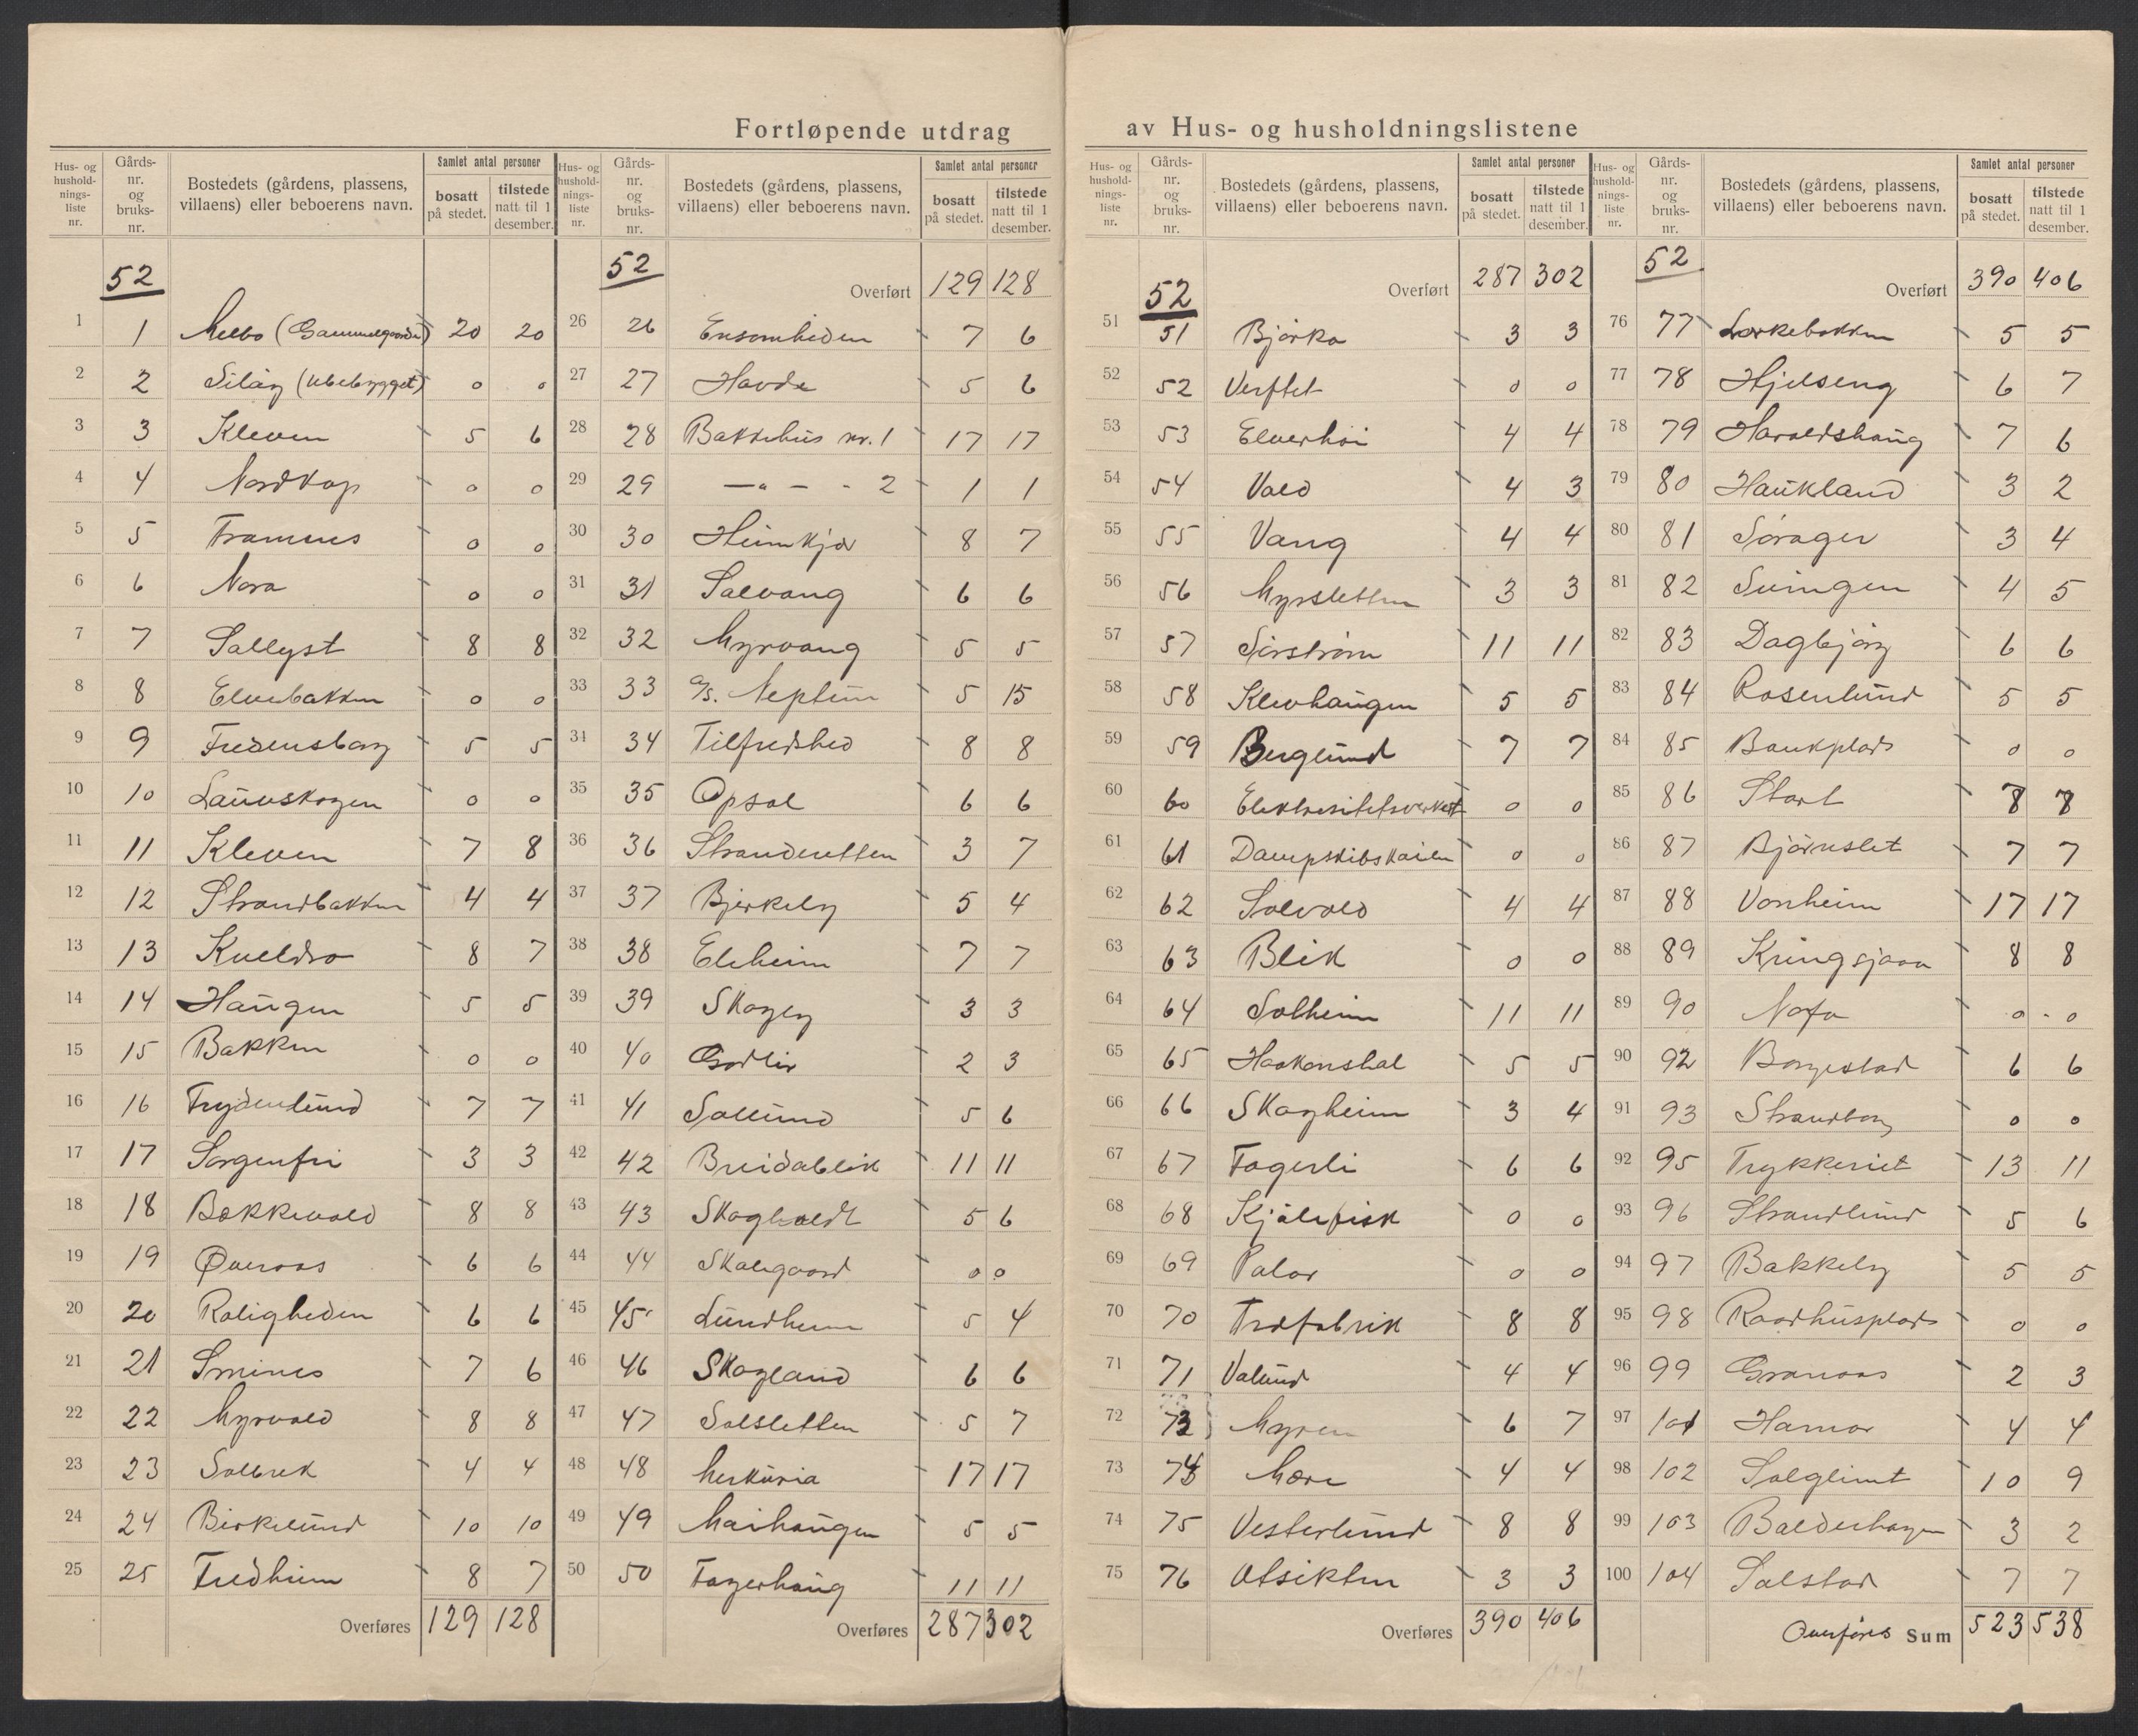 Fortløpende utdrag av Hus- og husholdningslistene
Hus- og husholdnings-liste nr. | Gårds-nr. og bruks-nr. | Bostedets (gårdens, plassens, villaens) eller beboerens navn. | Samlet antal personer: bosatt på stedet. | tilstede natt til 1 desember.
52
1 1 Melbo (Gammelgaarden) 20 20
2 2 Silåg (Ubebygget) 0 0
3 3 Kleven 5 6
4 4 Nordkap 0 0
5 5 Framnes 0 0
6 6 Nora 0 0
7 7 Sollyst 8 8
8 8 Elvebakken 0 0
9 9 Fredensborg 5 5
10 10 Launskogen 0 0
11 11 Kleven 7 8
12 12 Strandbakken 4 4
13 13 Kveldro 8 7
14 14 Haugen 5 5
15 15 Bakken 0 0
16 16 Frydenlund 7 7
17 17 Sorgenfri 3 3
18 18 Bakkevold 8 8
19 19 Øveraas 6 6
20 20 Roligheden 6 6
21 21 Smines 7 6
22 22 Myrvold 8 8
23 23 Solbrek 4 4
24 24 Birkelund 10 10
25 25 Fredheim 8 7
Overføres 129 128
Hus- og husholdnings-liste nr. | Gårds-nr. og bruks-nr. | Bostedets (gårdens, plassens, villaens) eller beboerens navn. | Samlet antal personer: bosatt på stedet. | tilstede natt til 1 desember.
52 Overført 129 128
26 26 Ensomheden 7 6
27 27 Havda 5 6
28 28 Bakkehus nr. 1 17 17
29 29 —„— - 2 1 1
30 30 Heimkjær 8 7
31 31 Solvang 6 6
32 32 Myrvang 5 5
33 33 A/s. Neptun 5 15
34 34 Tilfredshed 8 8
35 35 Opsal 6 6
36 36 Stranderetten 3 7
37 37 Bjerkely 5 4
38 38 Elvheim 7 7
39 39 Skogly 3 3
40 40 Godlir 2 3
41 41 Sollund 5 6
42 42 Breidablik 11 11
43 43 Skogholdt 5 6
44 44 Skolegaard 0 0
45 45 Lundheim 5 4
46 46 Skogland 6 6
47 47 Solsletten 5 7
48 48 Merkuria 17 17
49 49 Maihaugen 5 5
50 50 Fagerhaug 11 11
Overføres 287 302
Hus- og husholdnings-liste nr. | Gårds-nr. og bruks-nr. | Bostedets (gårdens, plassens, villaens) eller beboerens navn. | Samlet antal personer: bosatt på stedet. | tilstede natt til 1 desember.
52 Overført 287 302
51 51 Bjørka 3 3
52 52 Verftet 0 0
53 53 Elverhøi 4 4
54 54 Vold 4 3
55 55 Vang 4 4
56 56 Myrsletten 3 3
57 57 Sørstrøm 11 11
58 58 Klevhaugen 5 5
59 59 Berglund 7 7
60 60 Elektrisitetsverket 0 0
61 61 Dampskibskaien 0 0
62 62 Solvold 4 4
63 63 Blik 0 0
64 64 Solheim 11 11
65 65 Haakonshal 5 5
66 66 Skogheim 3 4
67 67 Fagerli 6 6
68 68 Kjølefisk 0 0
69 69 Polar 0 0
70 70 Trafabrik 8 8
71 71 Volund 4 4
72 73 Myren 6 7
73 74 Mære 4 4
74 75 Vesterlund 8 8
75 76 Utsikten 3 3
Overføres 390 406
Hus- og husholdnings-liste nr. | Gårds-nr. og bruks-nr. | Bostedets (gårdens, plassens, villaens) eller beboerens navn. | Samlet antal personer: bosatt på stedet. | tilstede natt til 1 desember.
52 Overført 390 406
76 77 Lerkebakken 5 5
77 78 Hjelseng 6 7
78 79 Haraldshaug 7 6
79 80 Haukland 3 2
80 81 Sørager 3 4
81 82 Svingen 4 5
82 83 Dagbjørg 6 6
83 84 Rosenlund 5 5
84 85 Bankplads 0 0
85 86 Start 8 8
86 87 Bjørnslet 7 7
87 88 Vonheim 17 17
88 89 Kringsjaa 8 8
89 90 Nofa 0 0
90 92 Borgestad 6 6
91 93 Strandborg 0 0
92 95 Trykkeriet 13 11
93 96 Strandlund 5 6
94 97 Bakkely 5 5
95 98 Raadhusplads 0 0
96 99 Granaas 2 3
97 101 Hamar 4 4
98 102 Solglimt 10 9
99 103 Balderhagen 3 2
100 104 Solstad 7 7
Overføres Sum 523 538